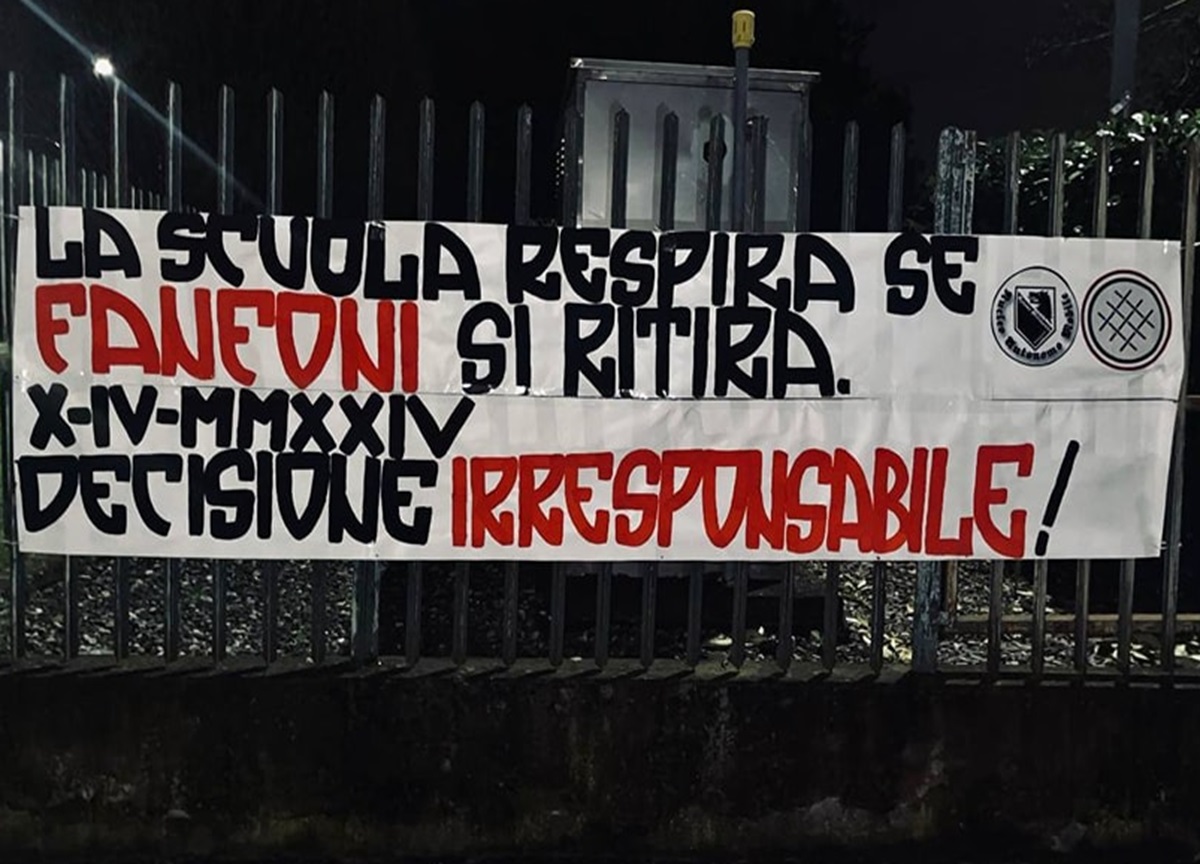 LA SCUOLA RESPIRA SE
FANFONI SI RITIRA.
X-IV-MMXXIV
DECISIONE IRRESPONSABILE!
Nucleo Autonomo Mobile